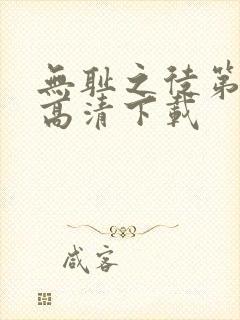 無耻之徒第
高清下載
咸客